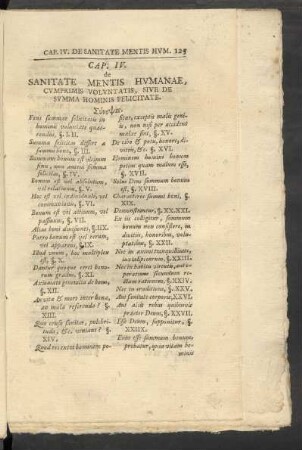 CAP. IV. DE SANITATE MENTIS HVM. 125
CAP. IV.
de
SANITATE MENTIS HVMANAE,
CVMPRIMIS VOLVNTATIS, SIVE DE
SVMMA HOMINIS FELICITATE.
Fons summae felicitatis in
homini voluntate quae-
rendus, §. I. II.
Summa felicitas differt a
summo bono, §. III.
Summum bonum est obiectum
, non summa
felicitas, §. IV.
Bonum est vel absolutum,
vel relativum, §. V.
Hoc est vel individuale, vel
commune, §. VI.
Bonum est vel activum, vel
passivum, §. VII.
Alias boni divisiones, §. IIX.
Porro bonum est vel verum,
vel apparens, §. IX.
Illud verum, hoc multiplex
est, §. X.
Dantur quoque certi bono-
rum gradus, §. XI.
bonorum, §.
XII.
An vita & mors inter bona,
an mala referenda?
XIII.
Quo divitiae, pulchri-
tudo, &c. veniant? §.
XIV.
Quod virtutis humanae pe-
sitae, exceptis male
, non nisi per accidens
malae sint, §. XV.
De cibo & potu, honore, di-
vitiis, &c. §. XVI.
Hominum bonum
potius quam malum esse,
§. XVII.
Solus Deus summum bonum
est, §. XVIII.
Characteres summi boni, §.
XIX.
Demonstrantur, §. XX. XXI.
Ex iis colligitur, summum
bonum non consistere, in
divitiis, honoribus, volu-
ptatibus, §. XXII.
Nec in
voluptatum, §. XXIII.
Nec in habitu virtutis,
secundum re-
ctam rationem, §. XXIV.
Nec in eruditione, §. XXV.
Aut sanitate corporis, XXVI
Aut aliis rebus universis
praeter Deum, §. XXVII.
Ipse Deus, §.
XXIIX.
Deus esse summum bonum
probatur, quae vitam ho-
minis